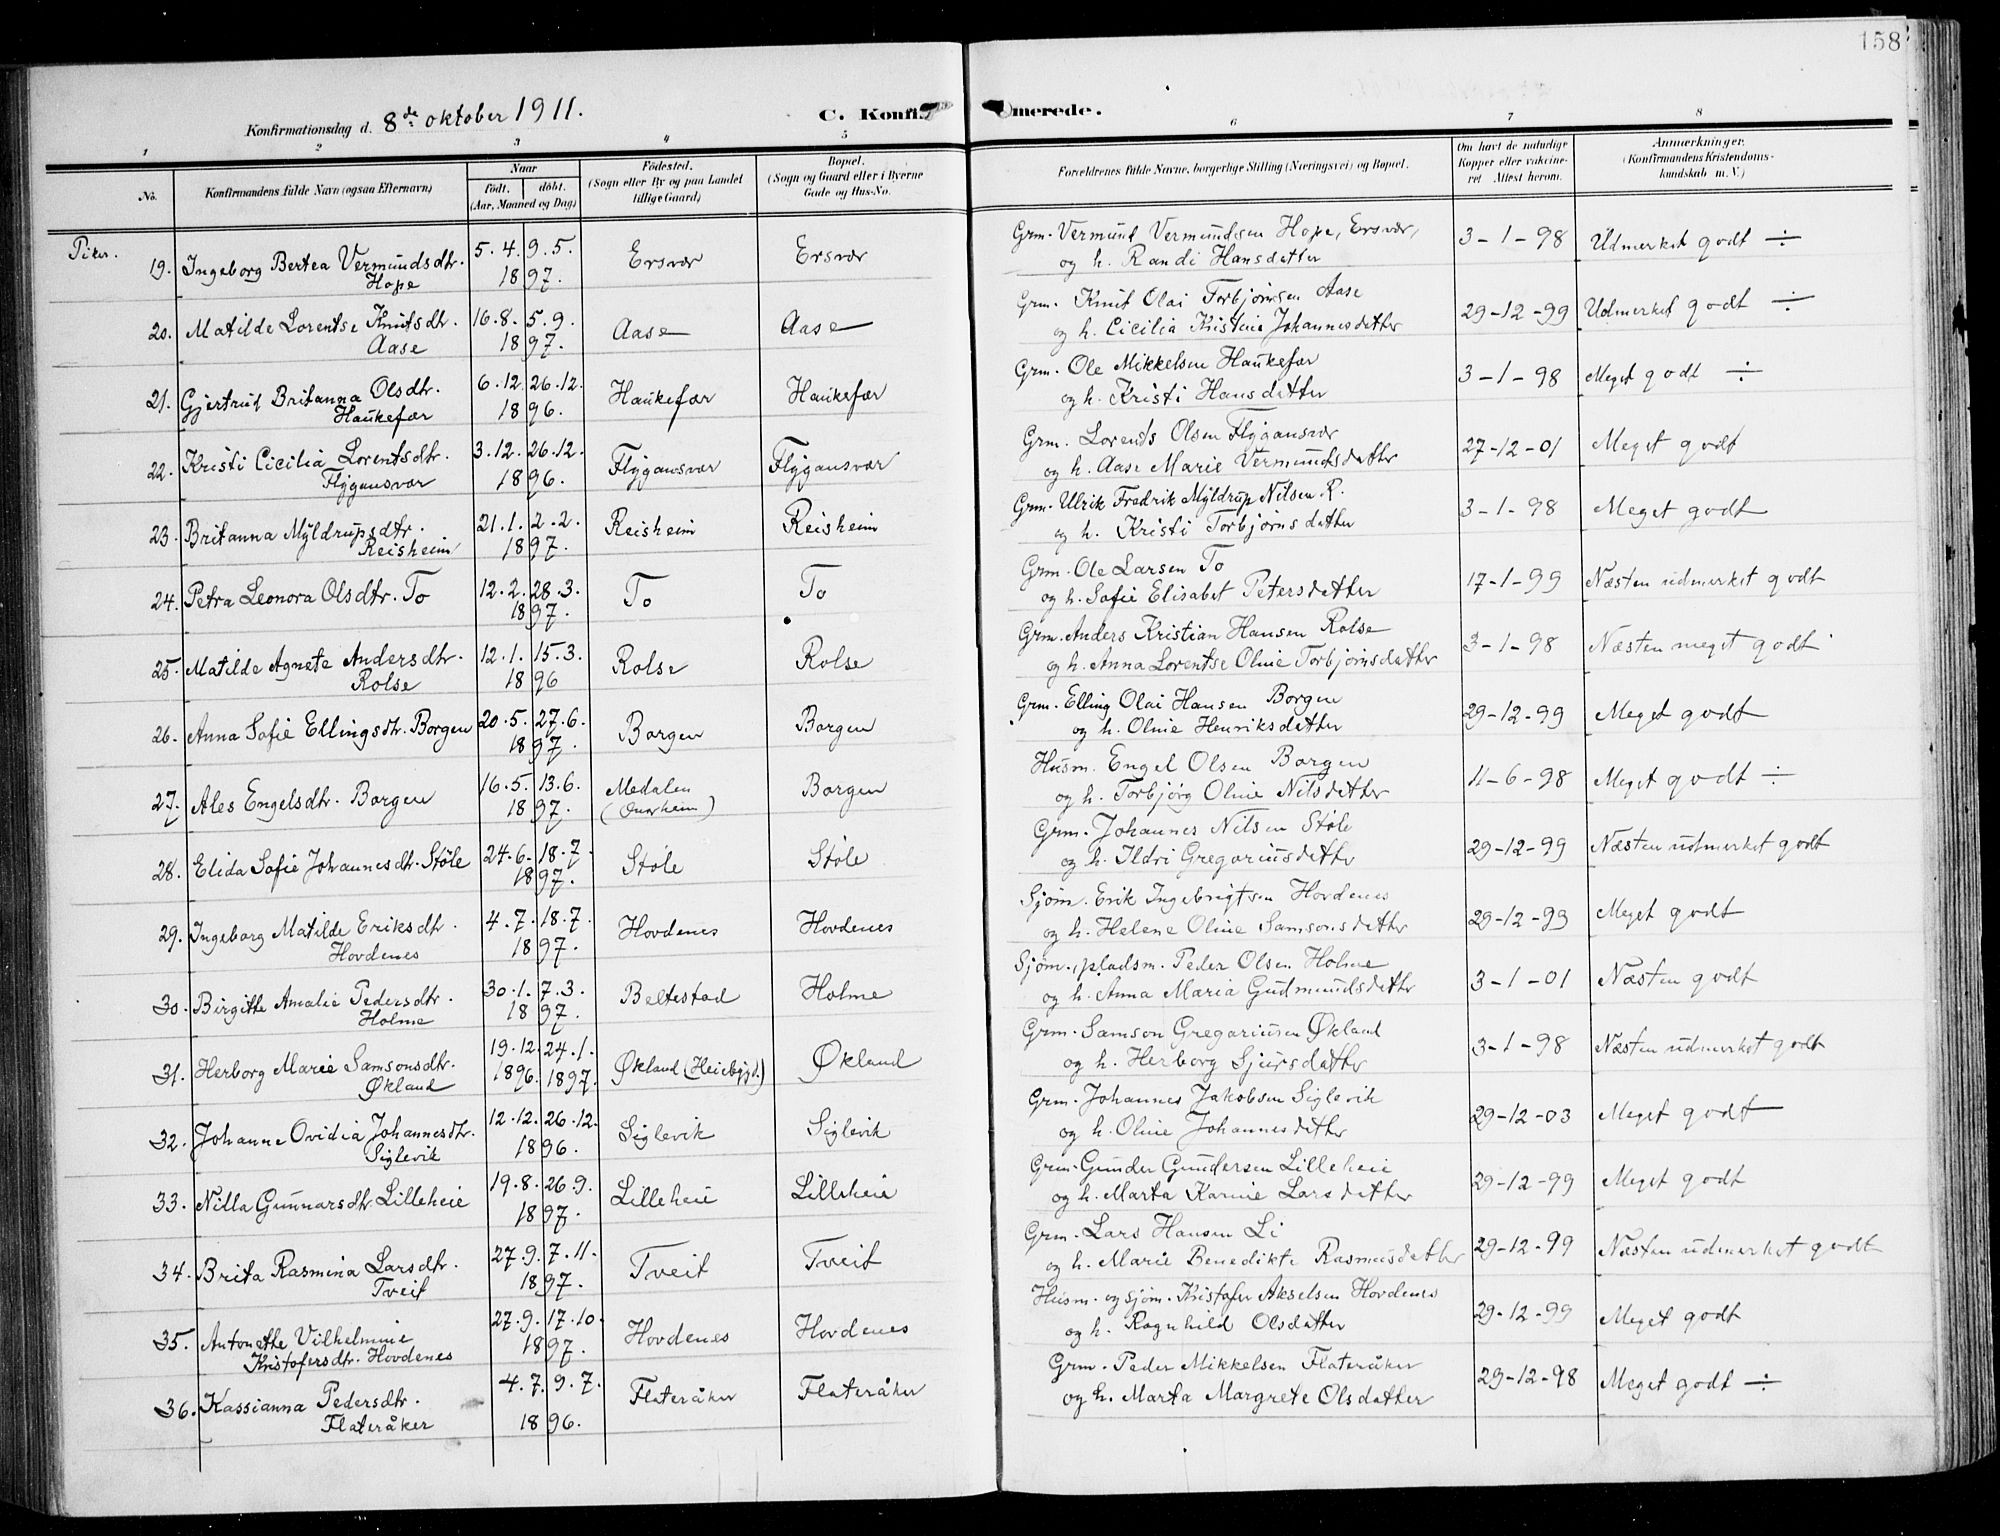 158
Konfirmationsdag d. 8de oktober 1911.
C. Konfirmerede.
1 2 3 4 5 6 7 8
No.
Konfirmandens fulde Navn (ogsaa Efternavn)
Naar
født. døbt.
(Aar, Maaned og Dag)
Fødested.
(Sogn eller By og paa Landet
tillige Gaard)
Bopæl.
(Sogn og Gaard eller i Byerne
Gade og Hus-No.
Forældrenes fulde Navne, borgerlige Stilling (Næringsvei) og Bopæl.
Om havt de naturlige
Kopper eller vakcine-
ret Attest herom.
Anmærkninger.
(Konfirmandens Kristendoms-
kundskab m. V.)
Piker.
19. Ingeborg Bertea Vermundsdtr. 5.4. 9.5. Ersvær Ersvær Grm. Vermund Vermundsen Hope, Ersvær, 3-1-98 Udmerket godt ÷
Hope 1897. og h. Randi Hansdatter
20. Matilde Lorentse Knutsdtr. 16.8. 5.9. Aase Aase Grm. Knut Olai Torbjørnsen Aase 29-12-99 Udmerket godt ÷
Aase 1897. og h. Cicilia Kristine Johannesdatter
21. Gjertrud Britanna Olsdtr. 6.12. 26.12. Haukefær Haukefær Grm. Ole Mikkelsen Haukefær 3-1-98 Meget godt ÷
Haukefær 1896. og h. Kristi Hansdatter
22. Kristi Cicilia Lorentsdtr. 3.12. 26.12. Flygansvær Flygansvær Grm. Lorents Olsen Flygansvær 27-12-01 Meget godt
Flygansvær 1896. og h. Aase Marie Vermundsdatter
23. Britanna Myldrupsdtr. 21.1. 2.2. Reisheim Reisheim Grm. Ulrik Fredrik Myldrup Nilsen R. 3-1-98 Meget godt
Reisheim 1897. og h. Kristi Torbjørnsdatter
24. Petra Leonora Olsdtr. To 12.2. 28.3. To To Grm. Ole Larsen To 17-1-99 Næsten udmerket godt
1897. og h. Sofie Elisabet Petersdatter
25. Matilde Agnete Andersdtr. 12.1. 15.3. Rolse Rolse Grm. Anders Kristian Hansen Rolse 3-1-98 Næsten meget godt
Rolse 1896 og h. Anna Lorentse Oline Torbjørnsdatter
26. Anna Sofie Ellingsdtr. Borgen 20.5. 27.6. Borgen Borgen Grm. Elling Olai Hansen Borgen 29-12-99 Meget godt
1897. og h. Oline Henriksdatter
27. Ales Engelsdtr. Borgen 16.5. 13.6. Medalen Borgen Husm. Engel Olsen Borgen 11-6-98 Meget godt ÷
1897. og h. Torbjørg Oline Nilsdatter
28. Elida Sofie Johannesdtr. Støle 24.6. 18.7. Støle Støle Grm. Johannes Nilsen Støle 29-12-99 Næsten udmerket godt
1897. og h. Ildri Gregoriusdatter
29. Ingeborg Matilde Eriksdtr. 4.7. 18.7. Hovdenes Hovdenes Sjøm. Erik Ingebrigtsen Hovdenes 29-12-99 Meget godt
Hovdenes 1897. og h. Helene Oline Samsonsdatter
30. Birgitte Amalie Pedersdtr. 30.1. 7.3. Beltestad Holme Sjøm., pladsm. Peder Olsen Holme 3-1-01 Næsten godt
Holme 1897. og h. Anna Maria Gudmundsdatter
31. Herborg Marie Samsonsdtr. 19.12. 24.1. Økland (Heiebygd.) Økland Grm. Samson Gregoriusen Økland 3-1-98 Næsten udmerket godt
Økland 1896. 1897. og h. Herborg Sjursdatter
32. Johanne Ovidia Johannesdtr. 12.12. 26.12. Siglevik Siglevik Grm. Johannes Jakobsen Siglevik 29-12-03 Meget godt
Siglevik 1896. og h. Oline Johannesdatter
33. Nilla Gunnarsdtr. Lilleheie 19.8. 26.9. Lilleheie Lilleheie Grm. Gunder Gundersen Lilleheie 29-12-99 Meget godt
1897. og h. Marta Karine Larsdatter
34. Brita Rasmina Larsdtr. 27.9. 7.11. Tveit Tveit Grm. Lars Hansen Li 29-12-99 Næsten udmerket godt
Tveit 1897. og h. Marie Benedikte Rasmusdatter
35. Antonette Vilhelmine 27.9. 17.10. Hovdenes Hovdenes Husm. og sjøm. Kristofer Akselsen Hovdenes 29-12-99 Meget godt
Kristofersdtr. Hovdenes 1897. og h. Ragnhild Olsdatter
36. Kassianna Pedersdtr. 4.7. 9.7. Flateråker Flateråker Grm. Peder Mikkelsen Flateråker 29-12-98 Meget godt ÷
Flateråker 1896. og h. Marta Margrete Olsdatter